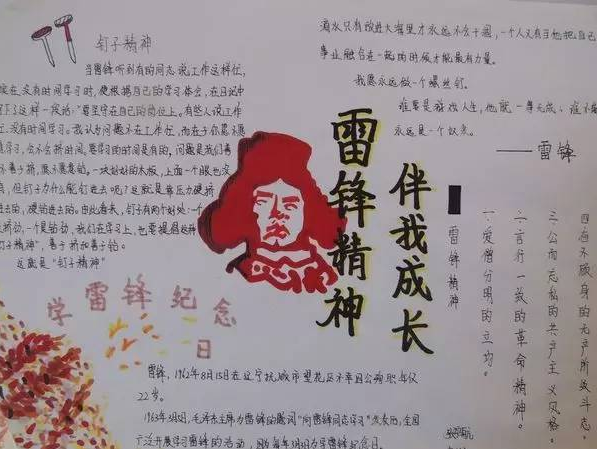 钉子精神
当雷锋听到有的同志说工作这样忙,
没有时间学习时,便根据自己的学习体会,在日记中
写下了这样一段话:"要坚守在自己的岗位上。有些人说工作
忙、没有时间学习。我认为问题不在工作忙,而在于你愿不愿
意学习,会不会挤时间。要学习的时间是有的,问题是我们善
不善于挤,愿不愿意钻。一块好好的木板,上面一个眼也没
有,但钉子为什么能钉进去呢?这就是靠压力硬挤
进去的,硬钻进去的。由此看来,钉子有两个好处:一个
是挤劲,一个是钻劲。我们在学习上,也要提倡这种
"钉子精神",善于挤和善于钻。
这就是"钉子精神"
滴水只有放进大海里才永远不会干涸,一个人只有当他把自己
事业融合在一起的时候才能最有力量。
我愿永远做一个螺丝钉。
谁要是游戏人生,他就一事无成、谁不
永远是一个奴隶。
——雷锋
雷锋精神
伴我成长
雷锋精神
一、爱憎分明的立场。
二、言行一致的革命精神。
三、公而忘私的共产主义风格。
四、奋不顾身的无产阶级斗志。
学雷锋纪念
日
雷锋,1962年8月15日在辽宁抚顺市望花区不幸因公殉职年仅
22岁。
1963年3月5日,毛泽东主席为雷锋的题词"向雷锋同志学习"发表后,全国
广泛开展学习雷锋的活动,每年3月5日为学雷锋纪念日。